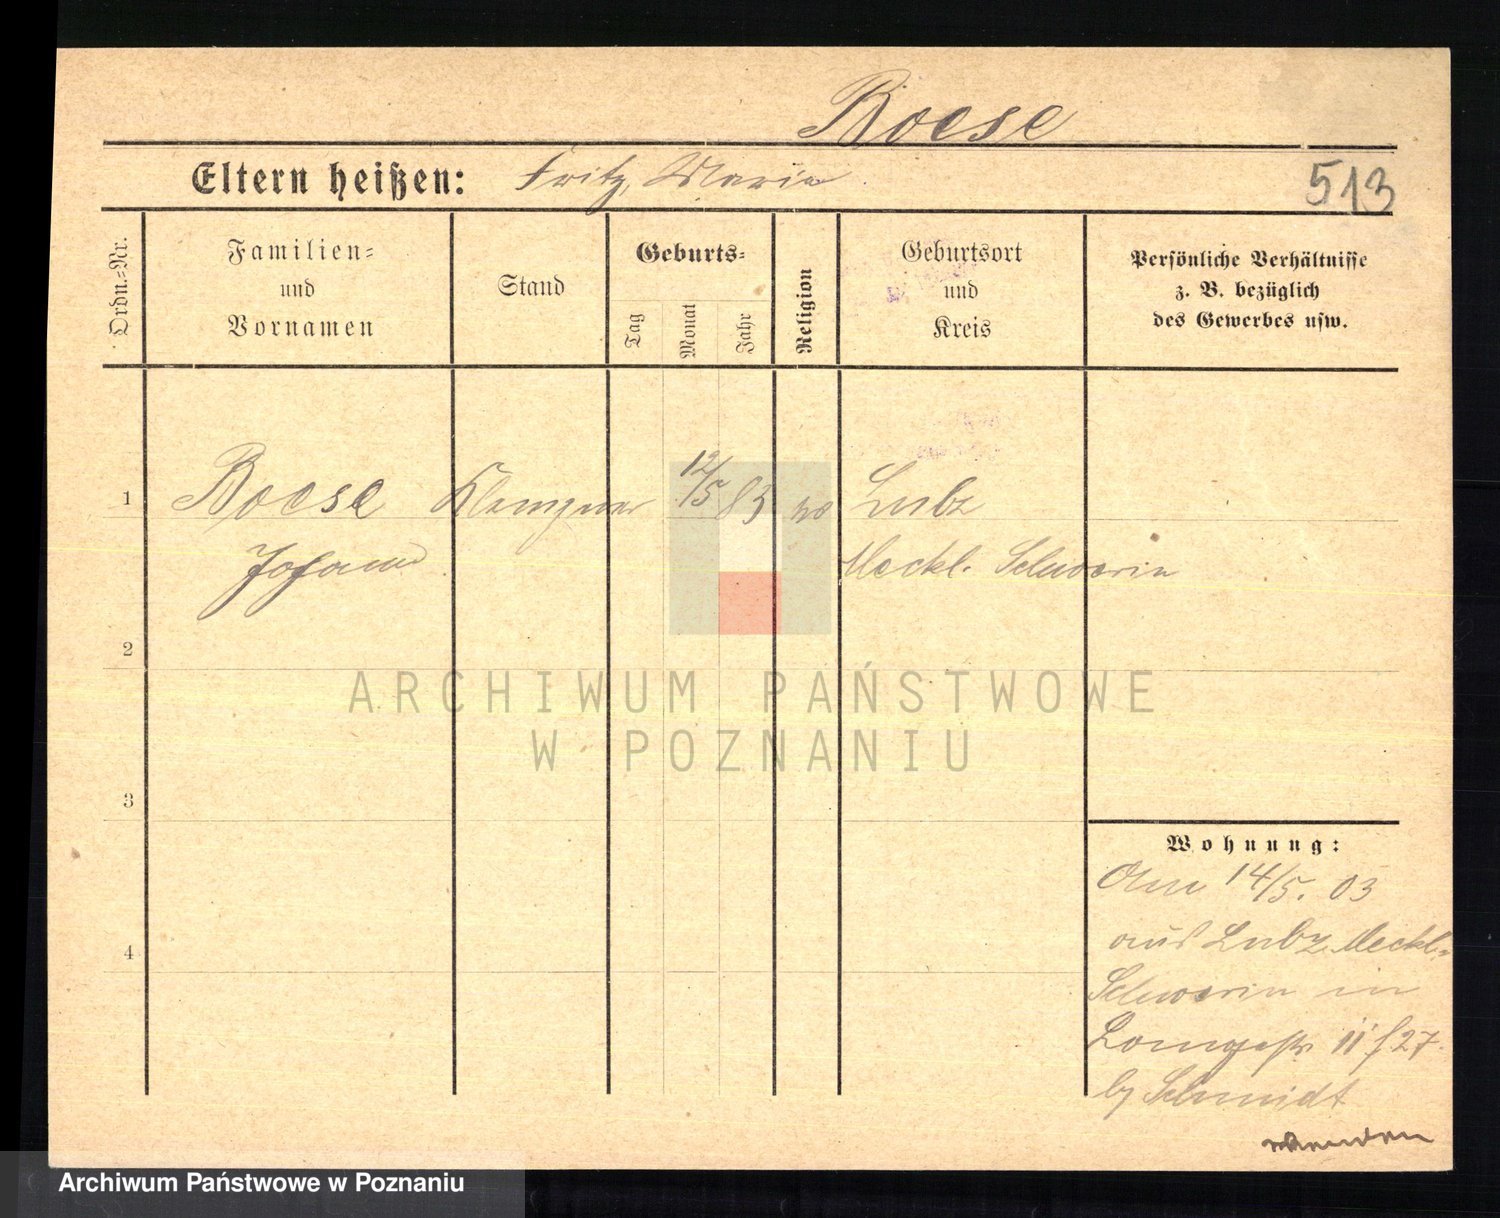 Boese
Eltern heißen: Fritz, Maria
513
Ordn.-Nr.
Familien-
und
Vornamen
Stand
Geburts-
Tag
Monat
Jahr
Religion
Geburtsort
und
Kreis
Persönliche Verhältnisse
z. B. bezüglich
des Gewerbes usw.
1 Boese Klempner 12/5 83 Lubz
Johann Meckl. Schwerin
2
ARCHIWUM PAŃSTWOWE
W POZNANIU
3
Wohnung:
14/5. 03
4
aus Lubz Meckl.
Schwerin in
Langestr 11 f 27.
by Schmidt
wenden
Archiwum Państwowe w Poznaniu